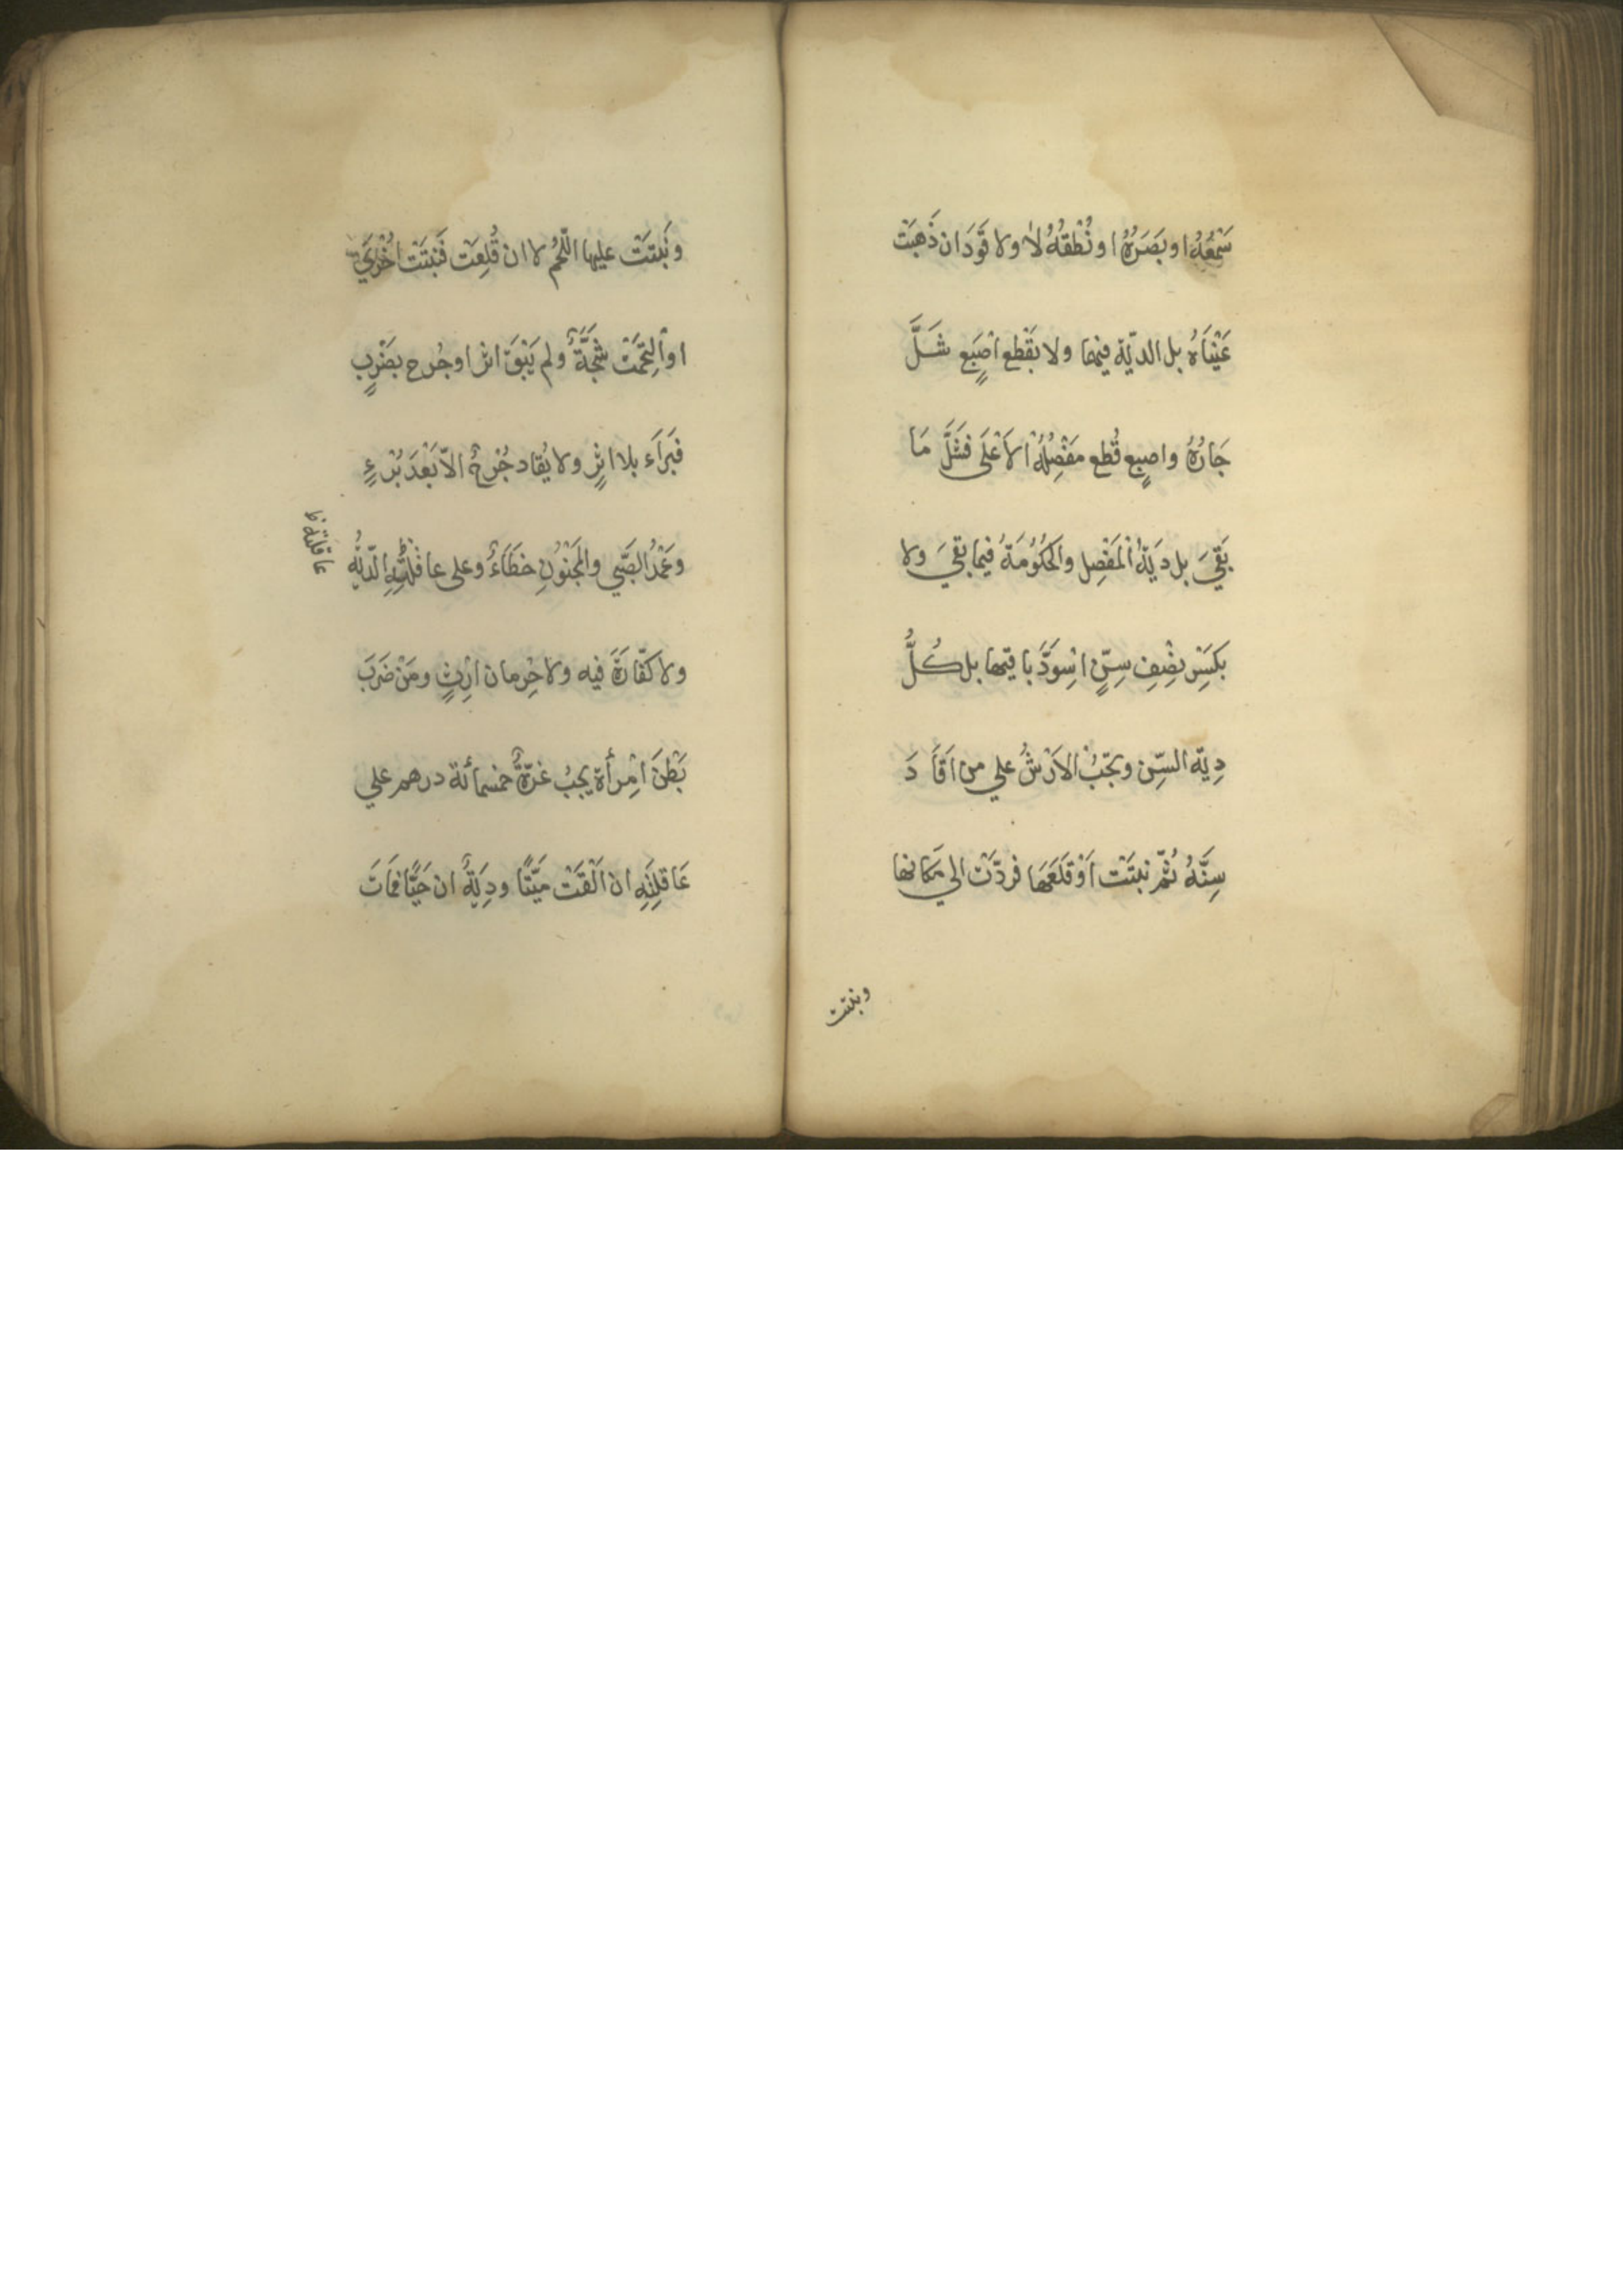 سَمْعُهُ او بَصَرُهُ او نُطْقُهُ لا ولا قَوَدَ ان ذَهَبَتْ
عَيْنَاهُ بل الديّة فيهما ولا بقَطع اصبَعٍ شَلَّ
جَارُهُ واصبعٍ قُطع مَفْصِلُهُ الاَعْلَى فَشَلَّ مَا
بَقِيَ بل دِيَةُ المَفْصِل والحُكُوُمَةُ فيما بقيَ ولا
بكَسْرِ نِصْفِ سِنٍّ اسْوَدَّ باقيها بل كُلُّ
دِيَة السِّن ويَجبُ الاَرْشُ علي من اَقَا دَ
سِنَّهُ ثمّ نبتَتْ اَوْ قَلَعَهَا فردّت الي مَكانها
ونبتت
ونَبَتَتْ عليها اللَّحْمُ لا ان قُلِعَت فَنبَتَتْ اُخْرَيَ
او الْتَحَمَتْ شَجَّةٌ ولم يَبْقَ اثر او جُرح بضَرْبٍ
فَبَرَاَء بلا اثرٍ ولا يُقاد جُرْحٌ الاّ بَعْدَ بُرْءٍ
وعَمْدُ الصَّبِي والمَجْنوُنِ خطَاءٌ وعلى عاقلتِهِ الدّيَةُ
عاقلته ظ
ولا كَفّارَةَ فيه ولا حِرْمان ارْثٍ ومَنْ ضَرَبَ
بَطْنَ امْرأة يجبُ غرّةٌ خمسمائة درهم علي
عَاقلِتِهِ ان اَلْقَتْ مَيّتًا ودِيَةٌ ان حَيًّا فمَاتَ